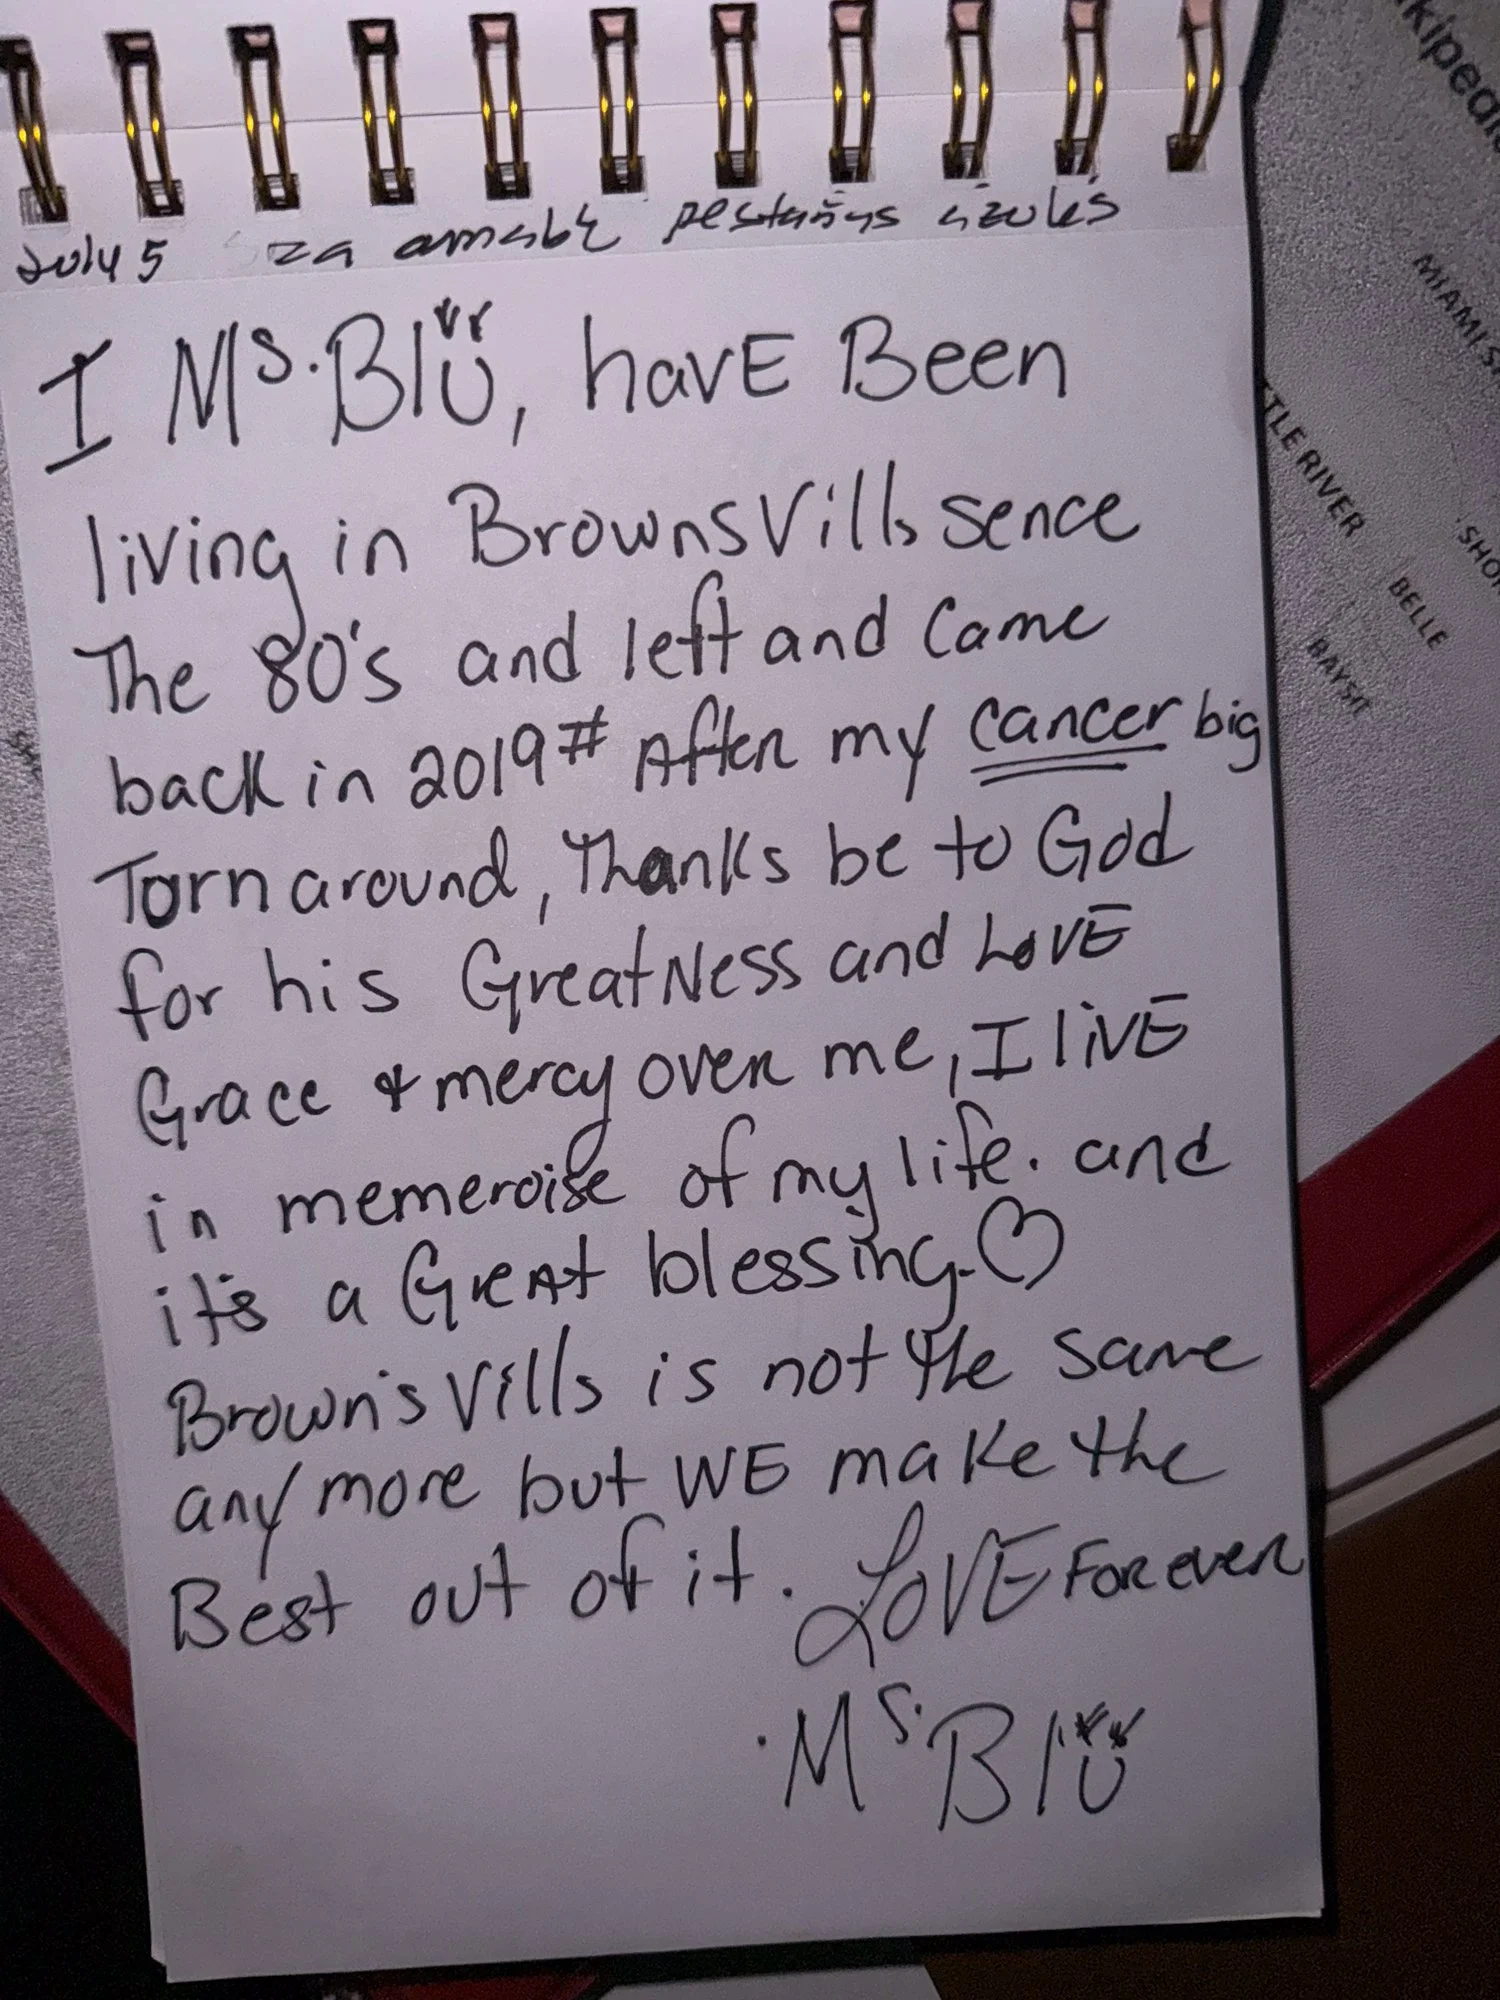 July 5 za amable pestañas azules
I Ms. Blü, havE Been
living in BrownsVills sence
The 80's and left and Came
back in 2019# After my cancer big
Torn around, Thanks be to God
for his GreatNess and LovE
Grace & mercy over me, I livE
in memeroise of my life. and
it's a Great blessing. ♡
Brown's Vills is not the same
any more but WE make the
Best out of it. LOVE Forever
. Ms. Blü
kipedia
MIAMI S
TLE RIVER
SHO
BELLE
BAYSI